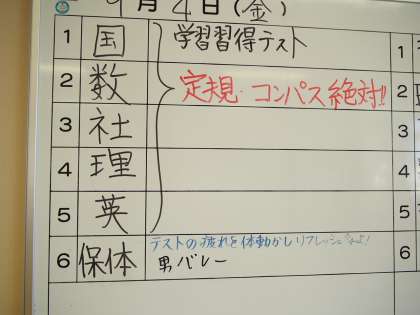 9月4日(金)
1 国 学習習得テスト
2 数 定規・コンパス絶対!!
3 社
4 理
5 英
6 保体 テストの疲れを体動かしリフレッシュ
男バレー
1
2
3
4
5
6